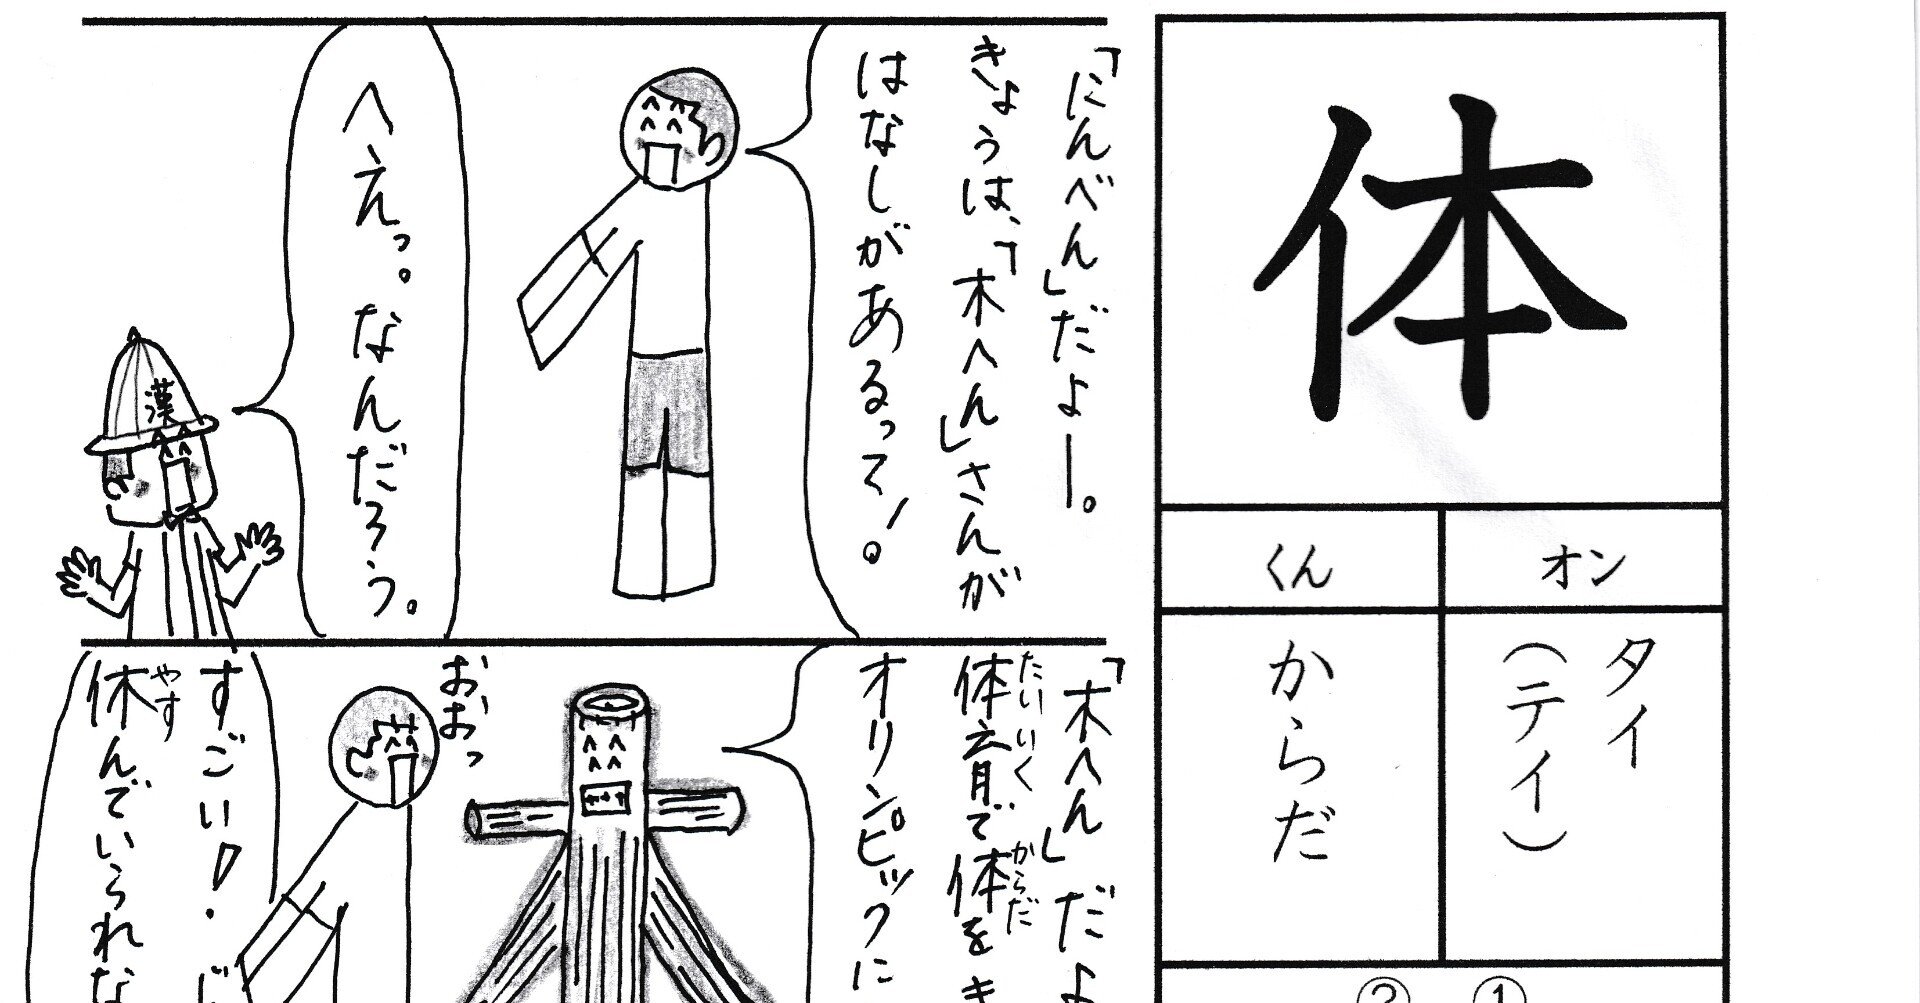 体
オン
くん
タイ
(テイ)
からだ
①
②
「にんべん」だよー。
きょうは、「木へん」さんが
はなしがあるって!。
へえっ。なんだろう。
漢
「木へん」だよ
たいいく
からだ
体育で体をき
オリンピックに
おおっ
すごい!.じ
やす
休んでいられな